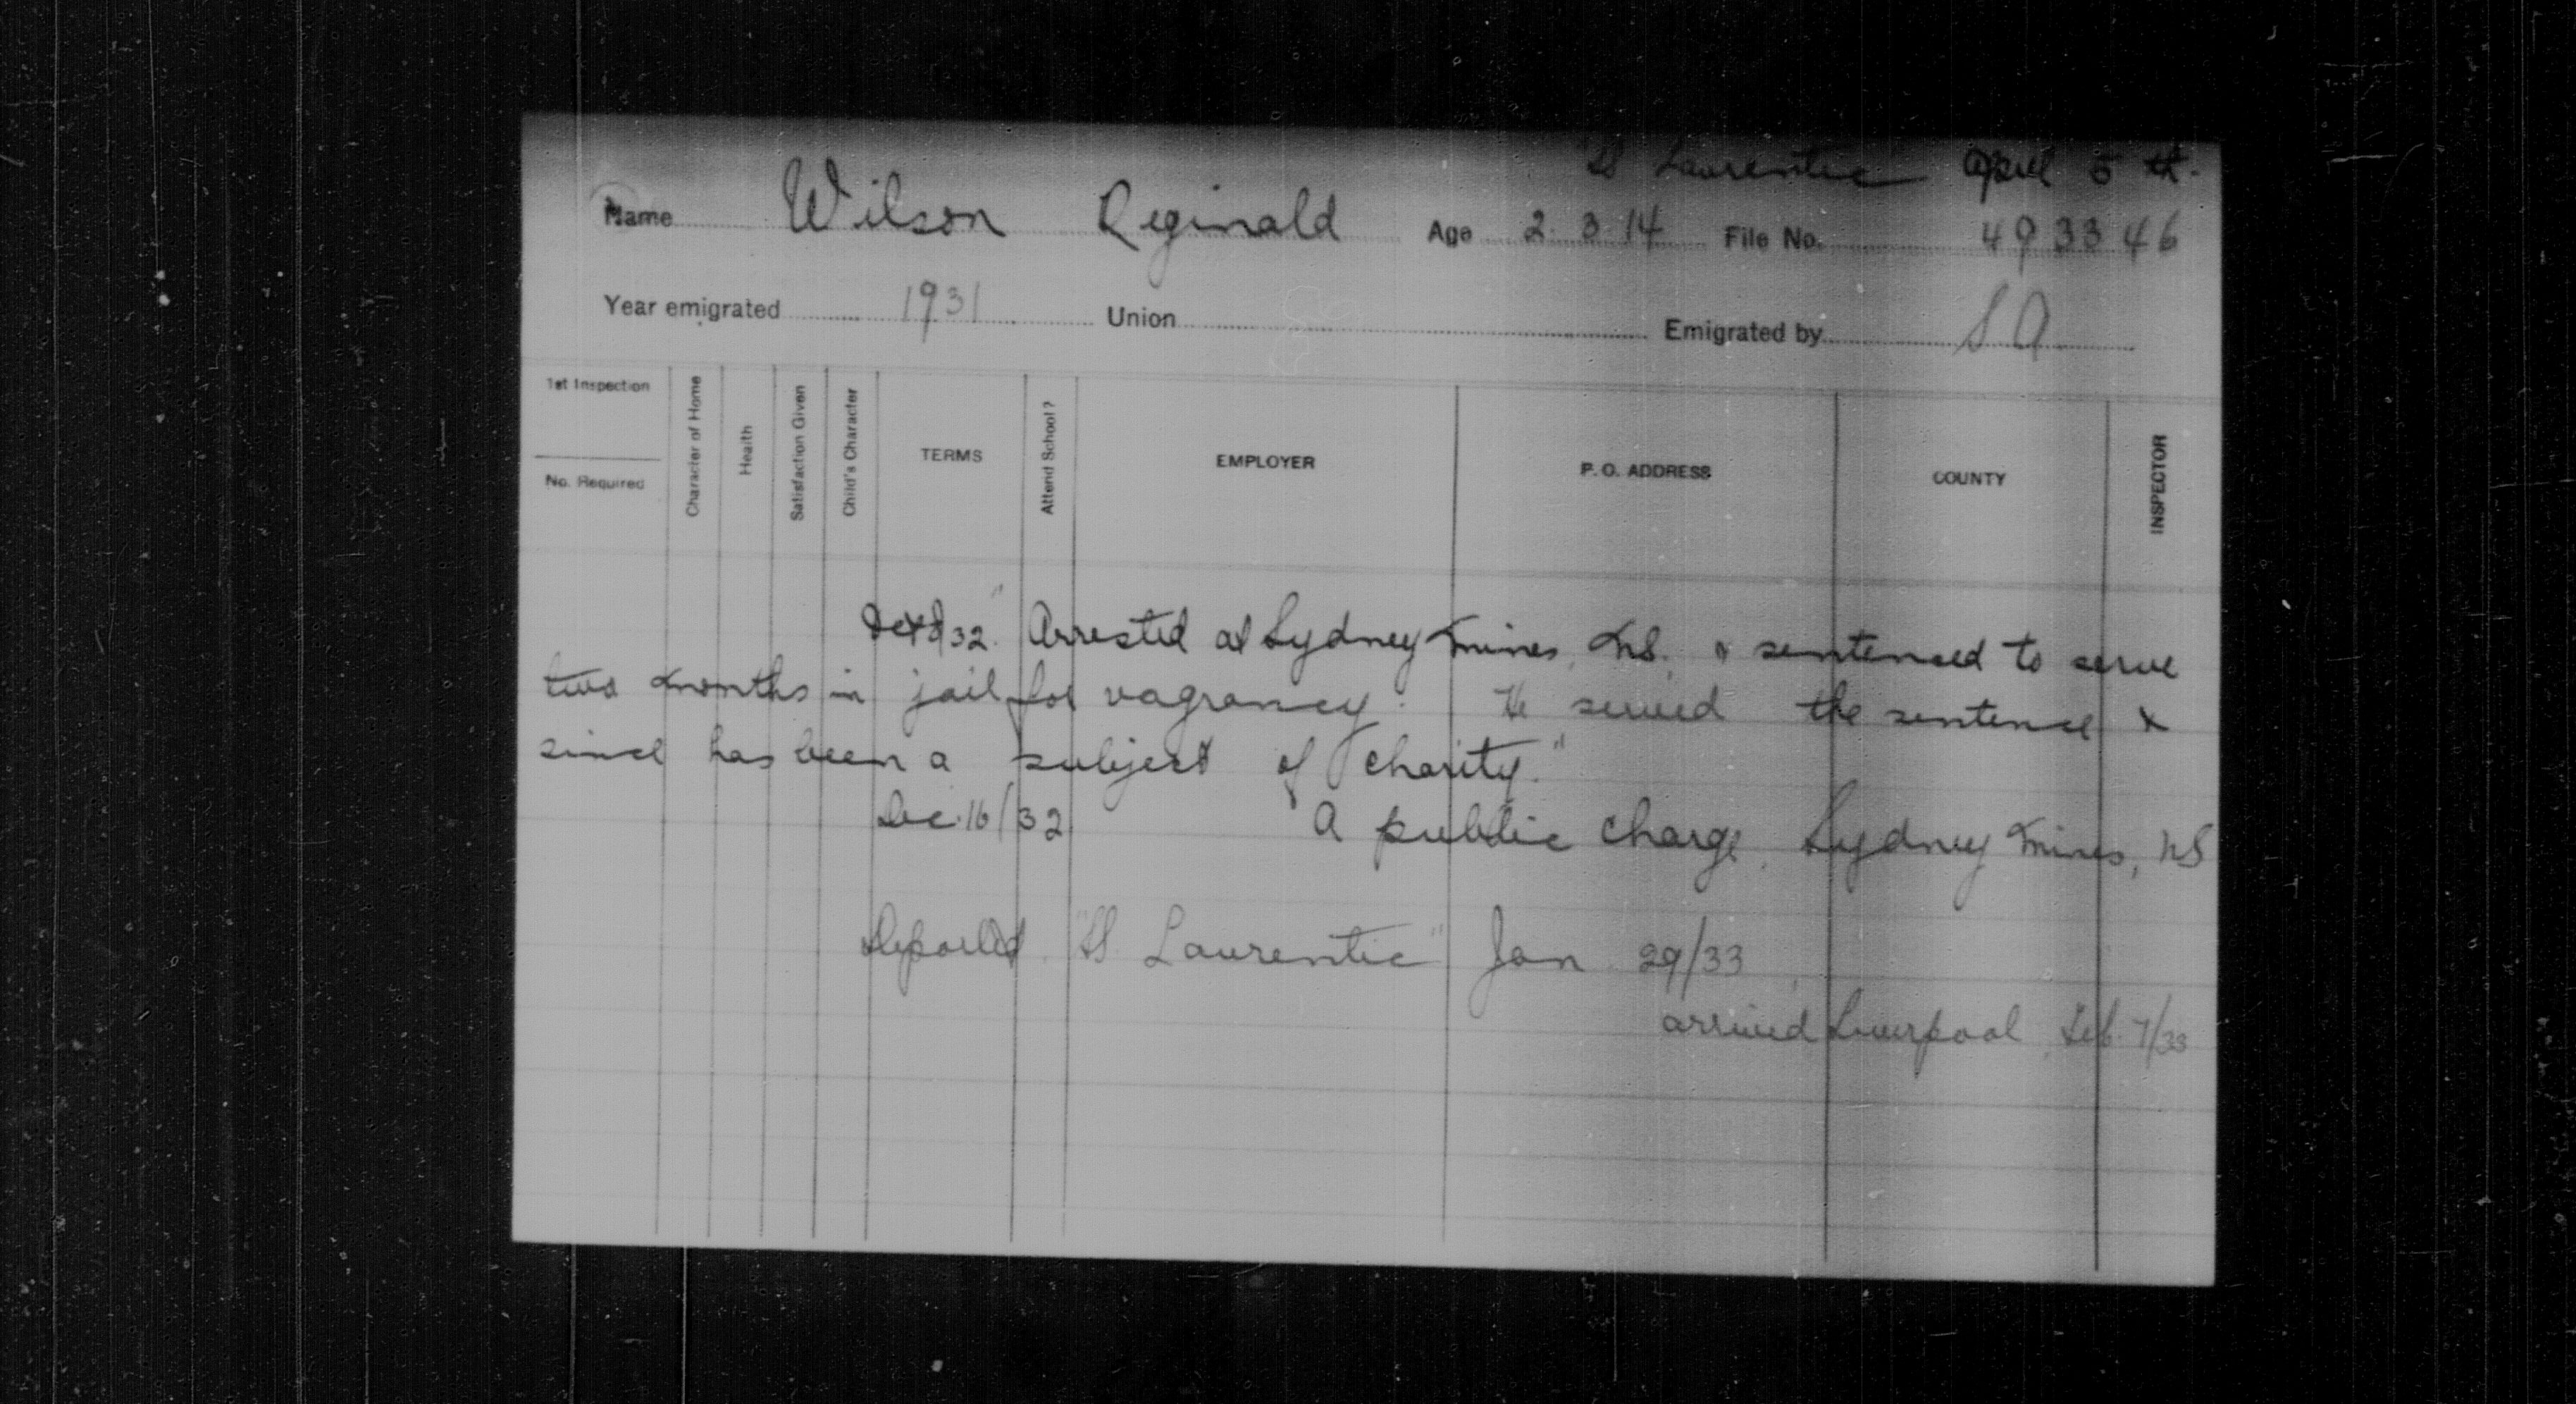 SS Laurentic April 5 th.
Name Wilson Reginald Age 2.3.14 File No. 493346
Year emigrated 1931 Union Emigrated by S A
1st Inspection
No. Required
Character of Home
Health
Satisfaction Given
Child's Character
TERMS
Attend School?
EMPLOYER
P. O. ADDRESS
COUNTY
INSPECTOR
32. "Arrested at Sydney Mines, N.S. & sentenced to serve
two months in jail for vagrancy. He served the sentence &
since has been a subject of charity."
Dec. 16/32 A public charge, Sydney Mines, NS
Deported "SS Laurentic" Jan 29/33
arrived Liverpool, Feb. 7/33